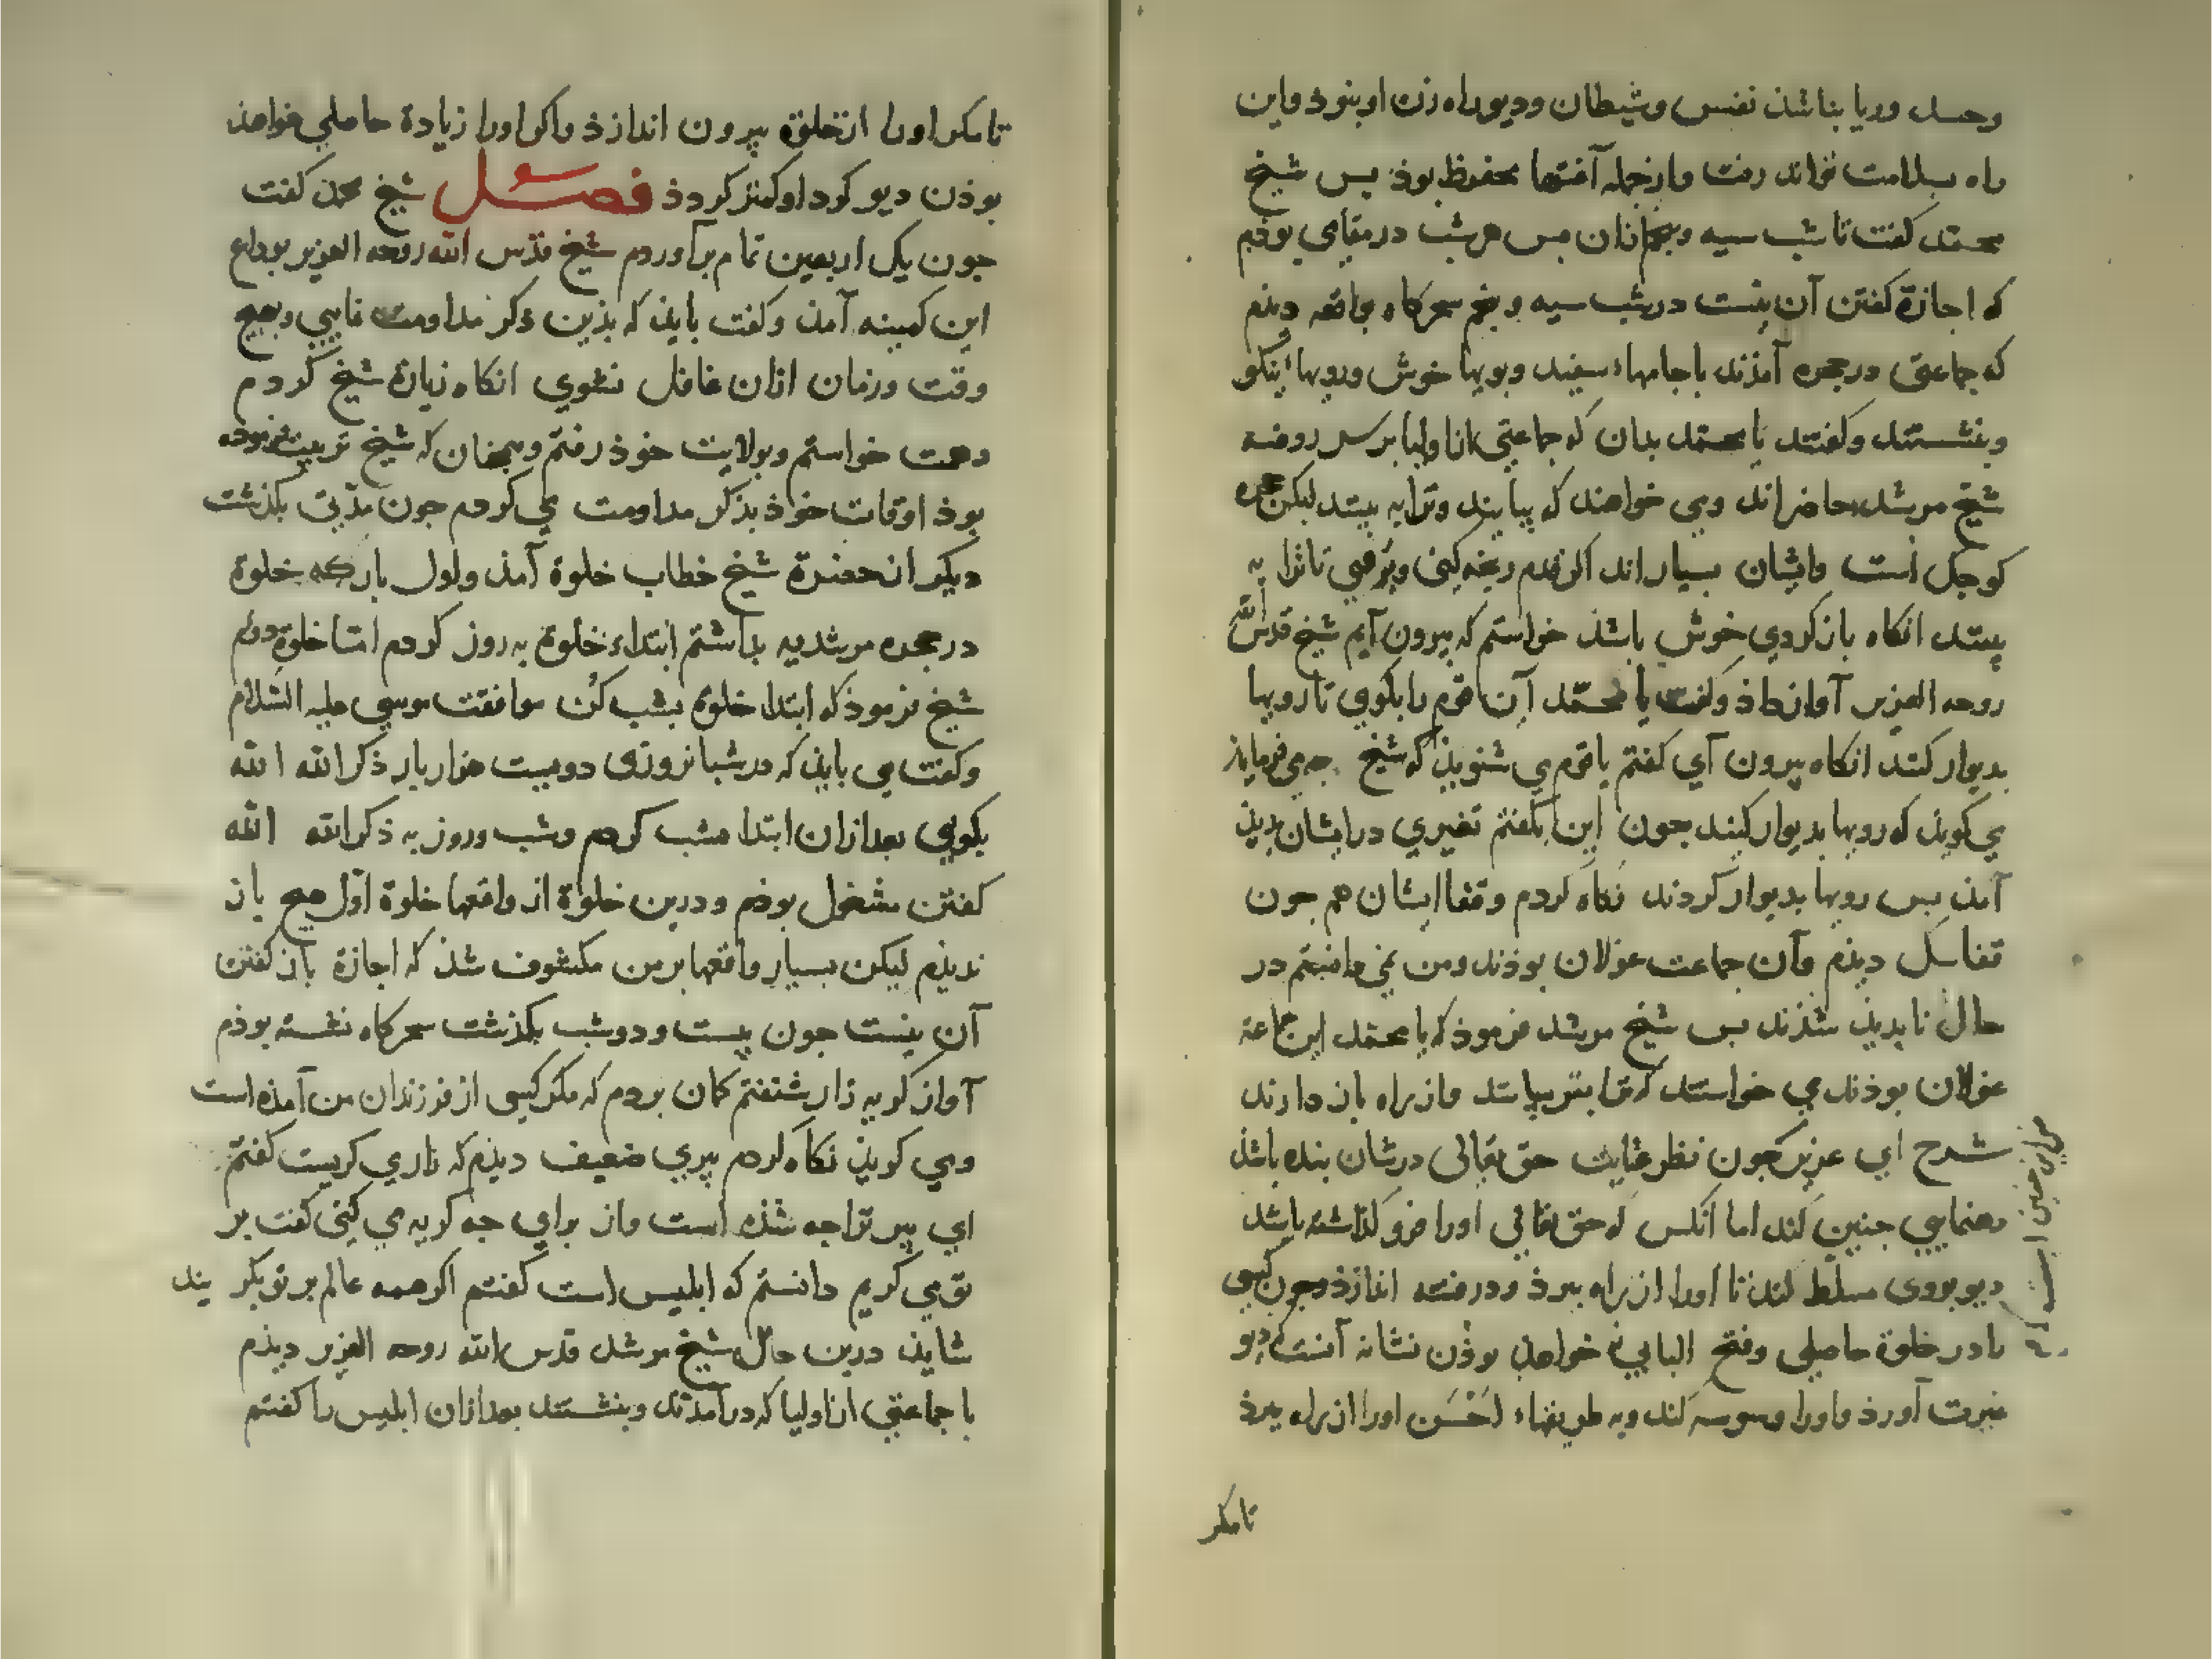 وحسد وریا بناشذ نفس وشیطان ودیو راه زن او بنوذ واین
راه بسلامت تواند رفت واز جمله آفتها محفوظ بوذ بس شیخ
محمد کفت تا شب سیه وبنجم از ان بس هر شب در مقامی بوذم
که اجازة کفتن آن نیست در شب سیه وبنجم سحرکاه بواقعه دیذم
که جماعتی در حجره آمذند با جامهاء سفید وبویها خوش ورویها نیکو
وبنشستند وکفتند یا محمد بدان که جماعتی از اولیا بر سر روضه
شیخ مرشد حاضراند ومی خواهند که بیایند وترا به بینند لیکن حجره
کوجک است وایشان بسیاراند اکر قدم رنجه کنی وبرون آیی تا ترا به
بینند انکاه باز کردی خوش باشذ خواستم که بیرون آیم شیخ قدس الله
روحه العزیز آواز داذ وکفت یا محمد آن قوم را بکوی تا رویها
بدیوار کنند انکاه بیرون آی کفتم یا قوم می شنویذ که شیخ جه می فرمایذ
می کویذ که رویها بدیوار کنیند جون این بکفتم تغیری در ایشان بدیذ
آمذ بس رویها بدیوار کردند نکاه کردم وقفا ایشان هم جون
قفا سک دیذم وآن جماعت غولان بوذند ومن نمی دانستم در
حال نابدیذ شذند بس شیخ مرشد فرموذ که یا محمد این جماعة
غولان بوذند می خواستند که ترا بترسانند واز راه باز دارند
شرح ای عزیز جون نظر عنایت حق تعالی در شان بنده باشذ
رهنمایی جنین کند اما انکس که حق تعالی اورا فرو کذاشته باشد
دیو بروی مسلط کند تا اورا از راه ببرذ ودر فتنه اندازذ وجون کسی
را در خلوة حاصلی وفتح البابی خواهد بوذن نشانه آنست که دیو
غیرت آورذ واورا وسوسه کند وبه طریقهاء احسن اورا از راه ببرذ
تا مکر
تا مکر اورا از خلوة بیرون اندازذ واکر اورا زیادة حاصلی خواهذ
بوذن دیو کرد او کمتر کردذ فصل شیخ محمد کفت
جون یک اربعین تمام برآوردم شیخ قدس الله روحه العزیز بوداع
این کمینه آمذ وکفت بایذ که بذین ذکر مداومت نمایی وبهیج
وقت وزمان ازان غافل نشوی انکاه زیارة شیخ کردم
وهمت خواستم وبولایت خوذ رفتم وهمجنان که شیخ تربیت فرموده
بوذ اوقات خوذ بذکر مداومت می کردم جون مدتی بکذشت
دیکر از حضرة شیخ خطاب خلوة آمذ واول بار که خلوة
در حجره مرشدیه بداشتم ابتداء خلوة به روز کردم امّا خلوة دوم
شیخ فرموذ که ابتدا خلوة بشب کن موافقت موسی علیه السّلام
وکفت می بایذ که در شبانروزی دویست هزار بار ذکر الله الله
بکویی بعد ازان ابتدا بشب کردم وشب وروز به ذکر الله الله
کفتن مشغول بوذم ودرین خلوة از واقعها خلوة اوّل هیج باز
ندیذم لیکن بسیار واقعها بر من مکشوف شذ که اجازة باز کفتن
آن نیست جون بیست ودو شب بکذشت سحرکاه نشسته بوذم
آواز کریه زار شنفتم کمان بردم که مکر کسی از فرزندان من آمذه است
ومی کویذ نکاه کردم بیری ضعیف دیذم که بزاری کریست کفتم
ای بیر ترا جه شذه است واز برای جه کریه می کنی کفت بر
تو می کریم دانستم که ابلیس است کفتم اکر همه عالم بر تو بکریند
شایذ درین حال شیخ مرشد قدس الله روحه العزیز دیذم
با جماعتی از اولیا که در آمذند وبنشستند بعد ازان ابلیس را کفتم